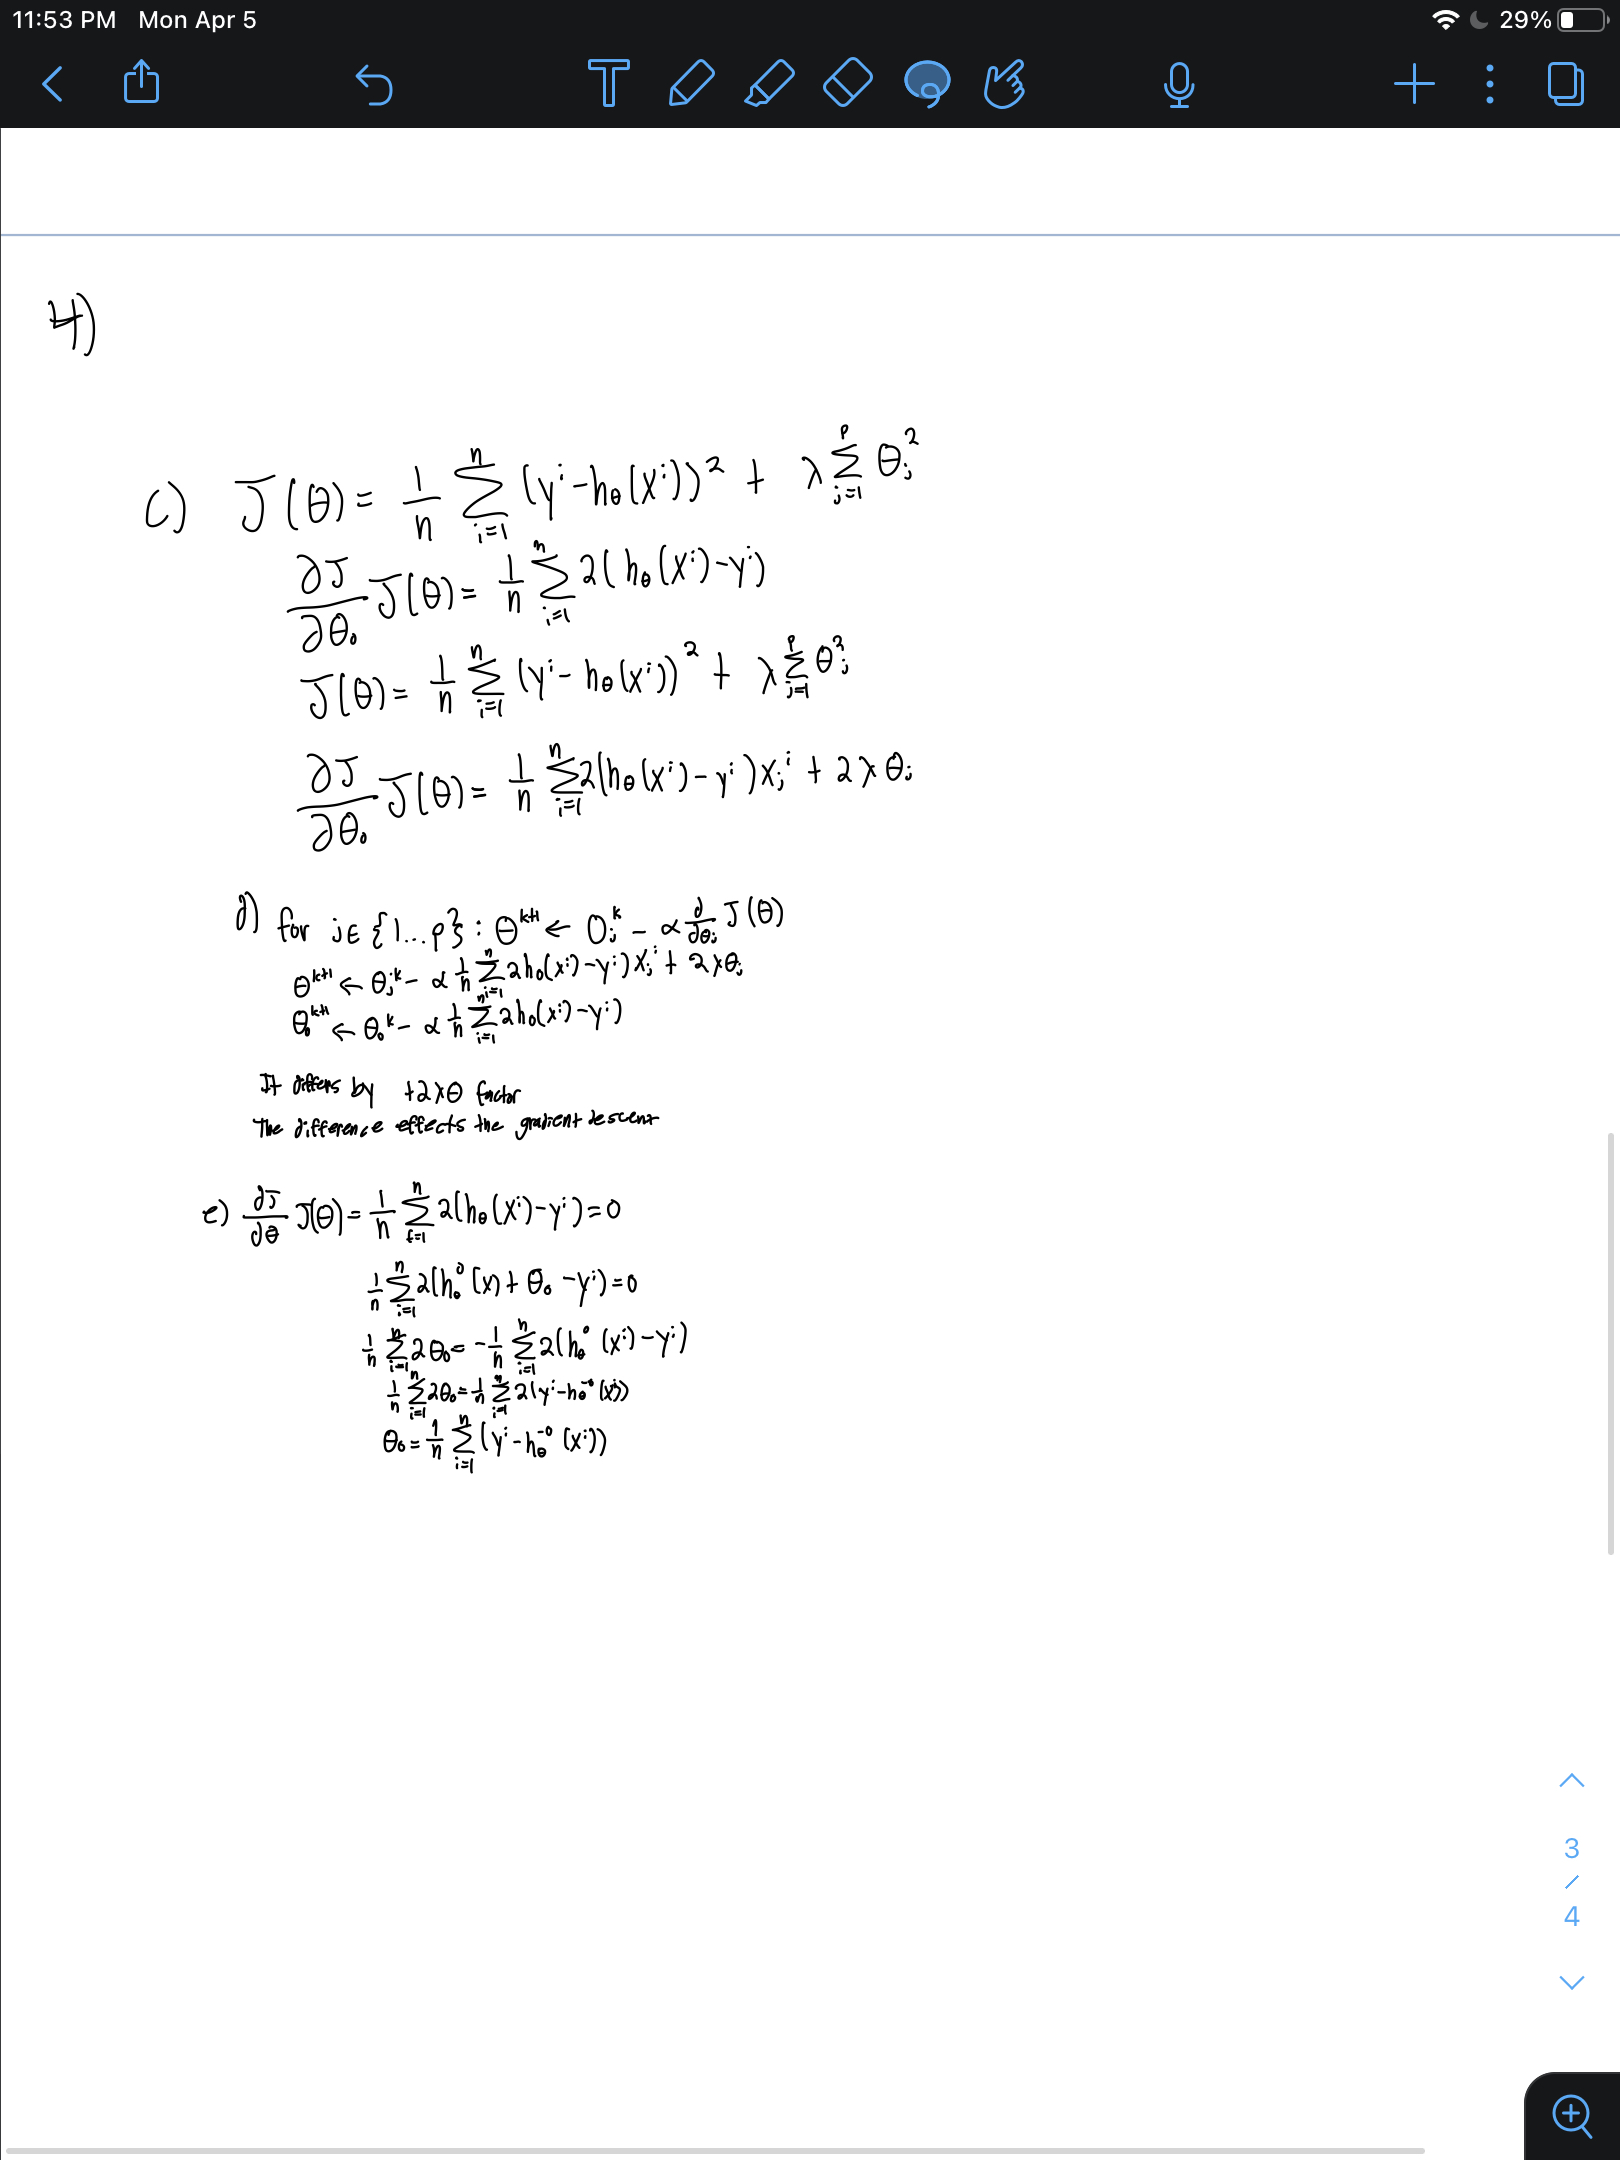 11:53 PM Mon Apr 5 29%
4)
c) J(θ) = 1/n Σ_{i=1}^{n} (y^i - h_θ(x^i))^2 + λ Σ_{j=1}^{p} θ_j^2
∂J/∂θ_0 J(θ) = 1/n Σ_{i=1}^{n} 2(h_θ(x^i) - y^i)
J(θ) = 1/n Σ_{i=1}^{n} (y^i - h_θ(x^i))^2 + λ Σ_{j=1}^{p} θ_j^2
∂J/∂θ_0 J(θ) = 1/n Σ_{i=1}^{n} 2(h_θ(x^i) - y^i) x_j^i + 2λθ_j
d) for j ∈ {1...p} : θ^{k+1} ← θ_j^k - α ∂/∂θ_j J(θ)
θ^{k+1} ← θ_j^k - α 1/n Σ_{i=1}^{n} 2h_θ(x^i) - y^i) x_j^i + 2λθ_j
θ_0^{k+1} ← θ_0^k - α 1/n Σ_{i=1}^{n} 2h_θ(x^i) - y^i)
It differs by +2λθ factor
The difference effects the gradient descent
e) ∂J/∂θ J(θ) = 1/n Σ_{i=1}^{n} 2(h_θ(x^i) - y^i) = 0
1/n Σ_{i=1}^{n} 2(h_θ^0(x) + θ_0 - y^i) = 0
1/n Σ_{i=1}^{n} 2θ_0 = - 1/n Σ_{i=1}^{n} 2(h_θ^0(x^i) - y^i)
1/n Σ_{i=1}^{n} 2θ_0 = 1/n Σ_{i=1}^{n} 2(y^i - h_θ^{-0}(x^i))
θ_0 = 1/n Σ_{i=1}^{n} (y^i - h_θ^{-0}(x^i))
3
/
4